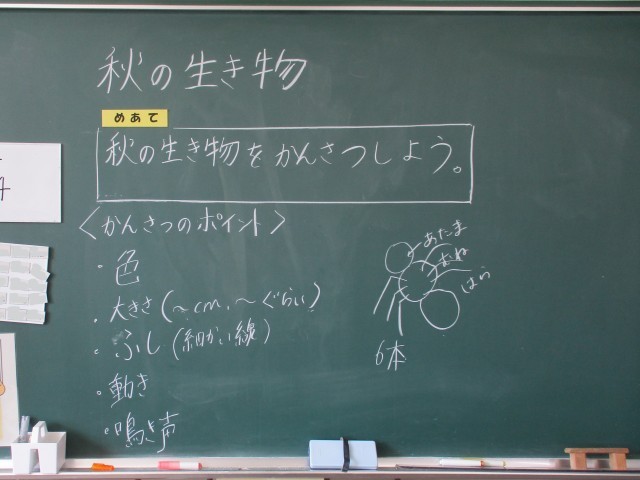 秋の生き物
めあて
秋の生き物をかんさつしよう。
〈かんさつのポイント〉
・色
・大きさ(〜cm、〜ぐらい)
・ふし(細かい線)
・動き
・鳴き声
あたま
むね
はら
6本